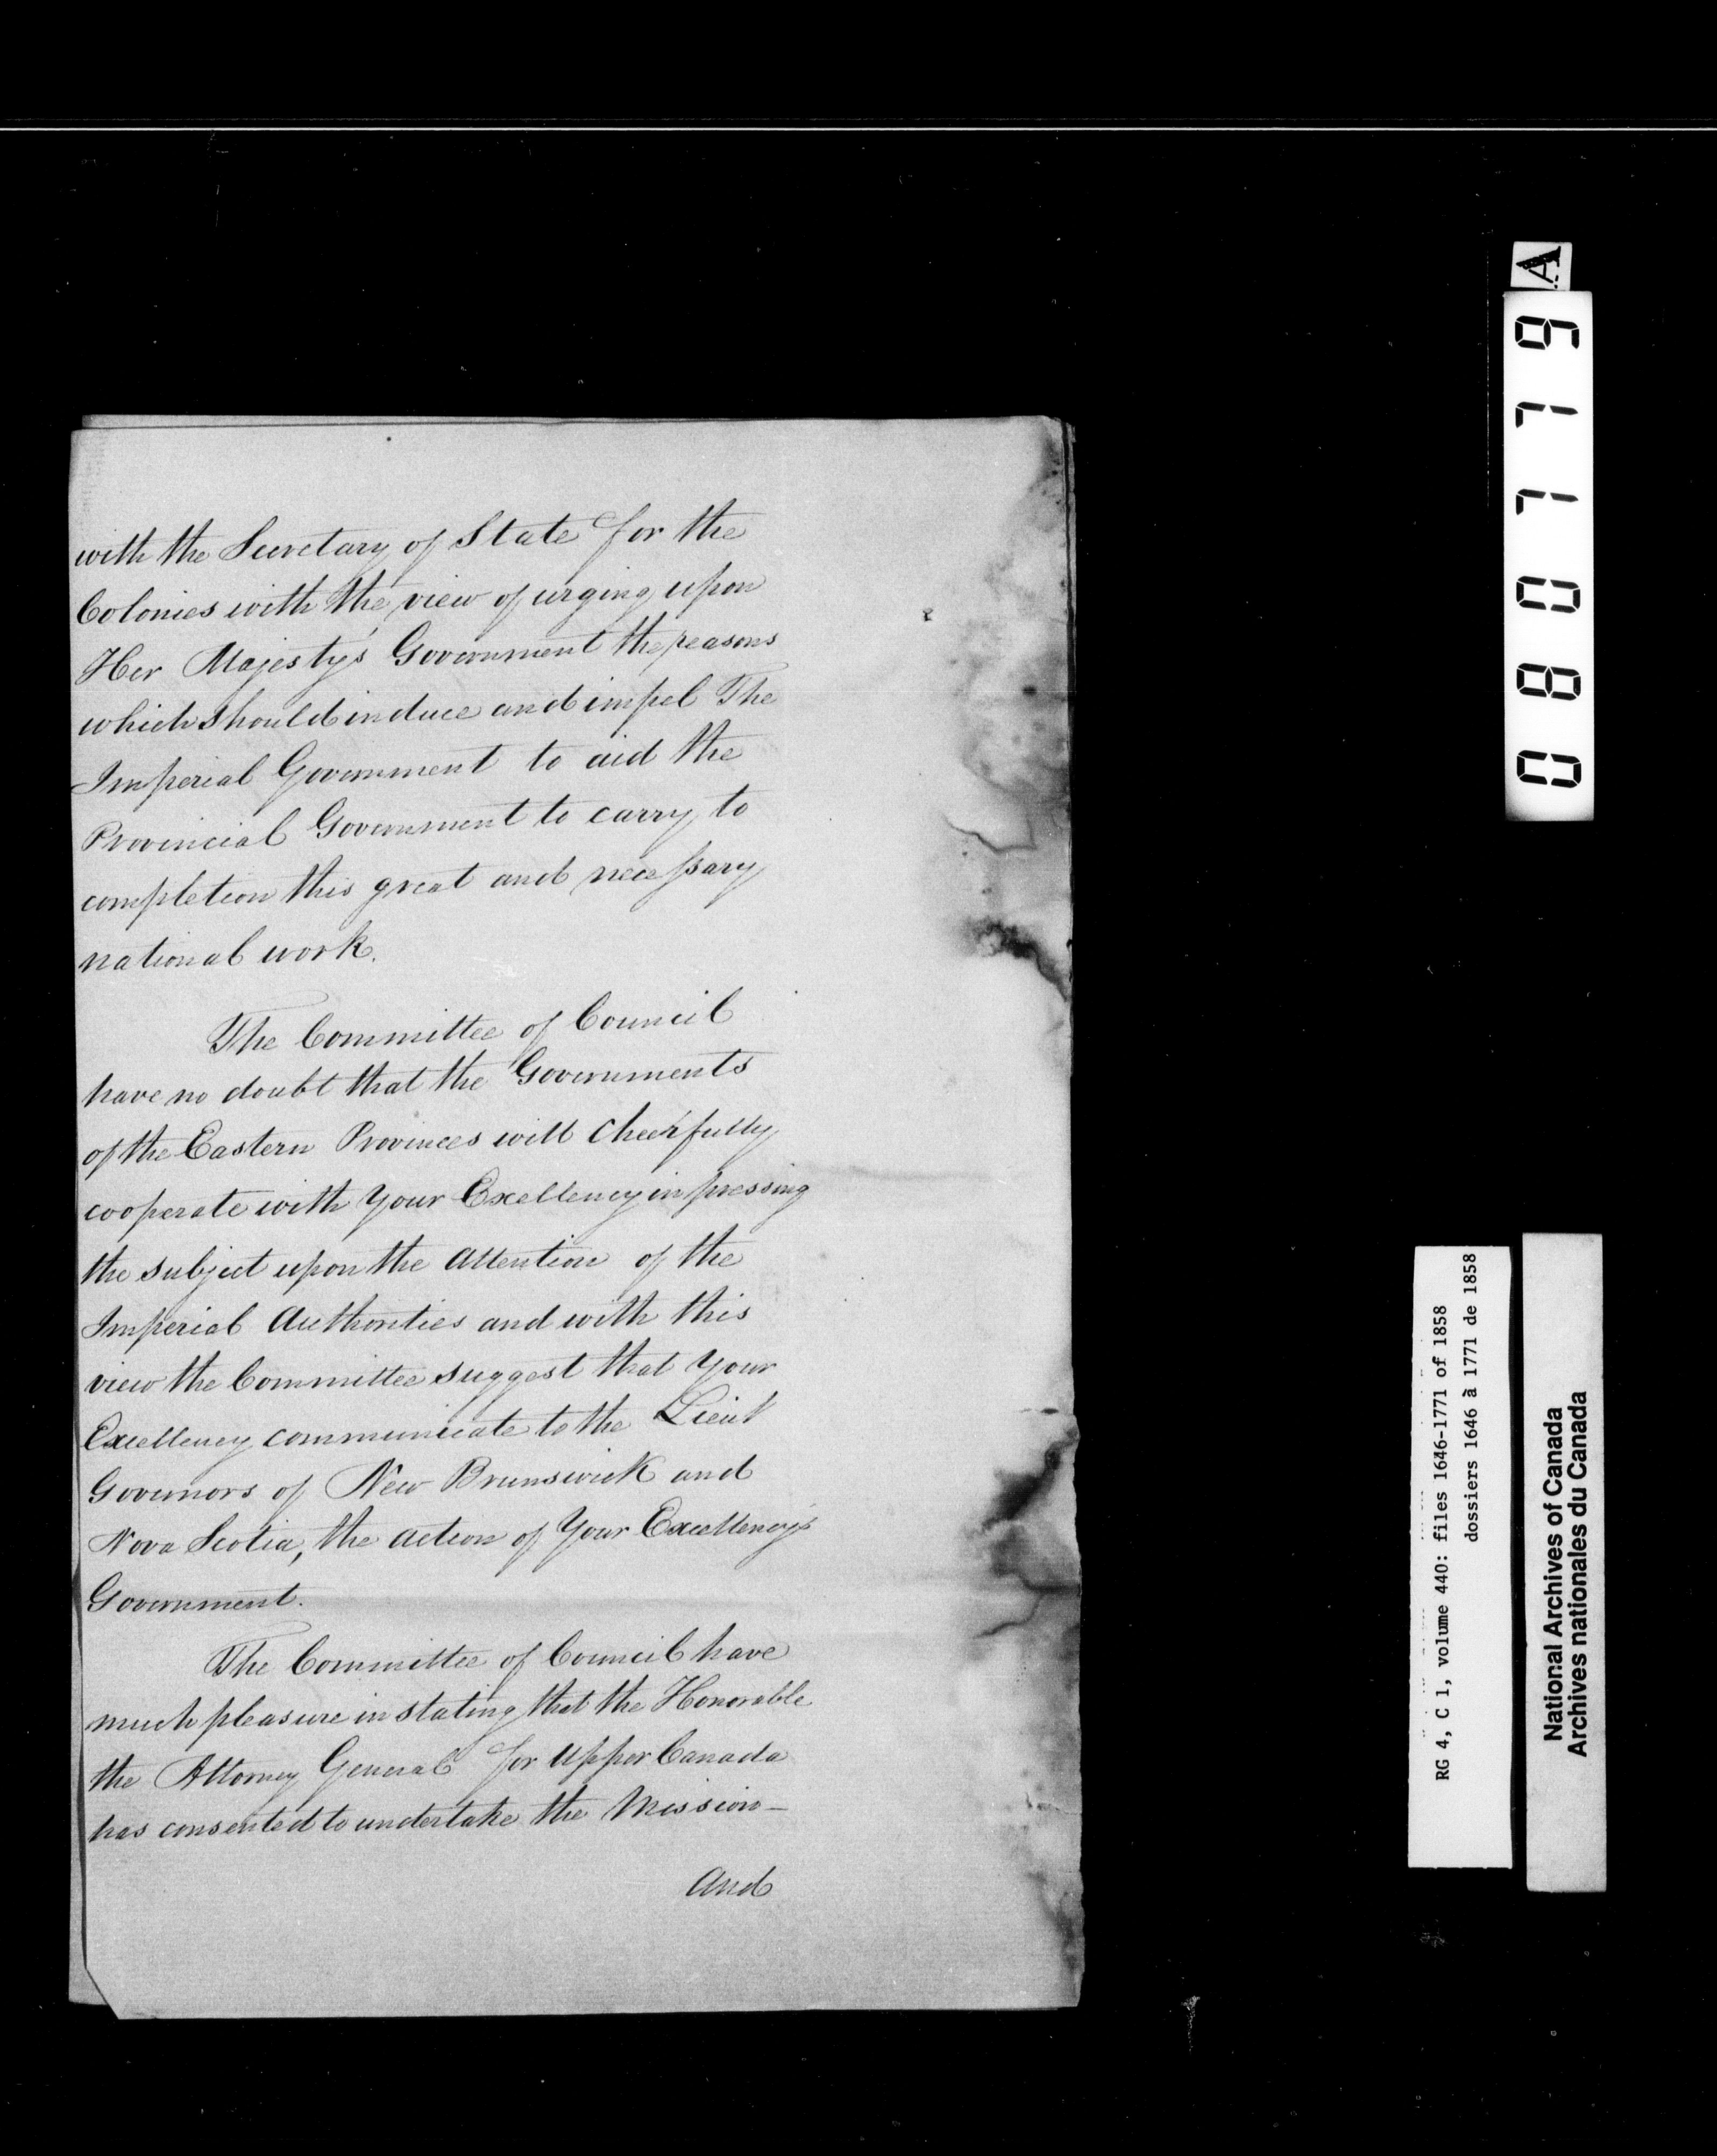 with the Secretary of State for the
Colonies with the view of urging upon
Her Majesty's Government the reasons
which should induce and impel The
Imperial Government to aid the
Provincial Government to carry to
completion this great and necessary
national work.
The Committee of Council
have no doubt that the Governments
of the Eastern Provinces will cheerfully
cooperate with Your Excellency in pressing
the subject upon the attention of the
Imperial Authorities and with this
view the Committee suggest that Your
Excellency communicate to the Lieut
Governors of New Brunswick and
Nova Scotia, the action of Your Excellency's
Government.
The Committee of Council have
much pleasure in stating that the Honorable
the Attorney General for Upper Canada
has consented to undertake the Mission—
And
080779 A
RG 4, C 1, volume 440: files 1646-1771 of 1858
dossiers 1646 à 1771 de 1858
National Archives of Canada
Archives nationales du Canada